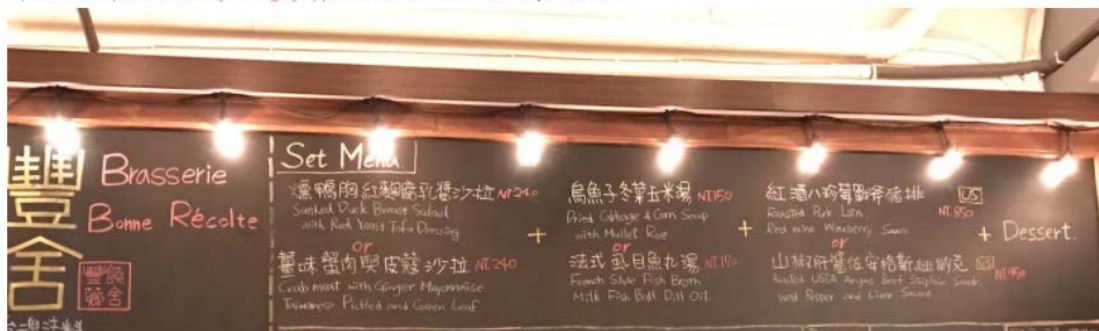 豐舍
Brasserie
Bonne Récolte
豐饒
藝舍
Set Menu.
燻鴨胸紅麴腐乳醬沙拉 NT.240
Smoked Duck Breast Salad
with Red Yeast Tofu Dressing
or
薑味蟹肉與皮蔻沙拉 NT.240
Crab meat with Ginger Mayonnaise
Taiwanese Pickled and Green Leaf
+
烏魚子冬菜玉米湯 NT.150
Dried Cabbage & Corn Soup
with Mullet Roe
or
法式虱目魚丸湯 NT.190
French Style Fish Broth
Milk Fish Ball, Dill Oil.
+
紅酒八珍莓戰斧豬排 US
NT.850
Roasted Pork Loin
Red wine Sauce
or
山椒肝醬佐安格斯紐約克 US
NT.950
Roasted USDA Angus Beef Striploin Steak
and Pepper and Liver Sauce
+ Dessert.
台灣法料